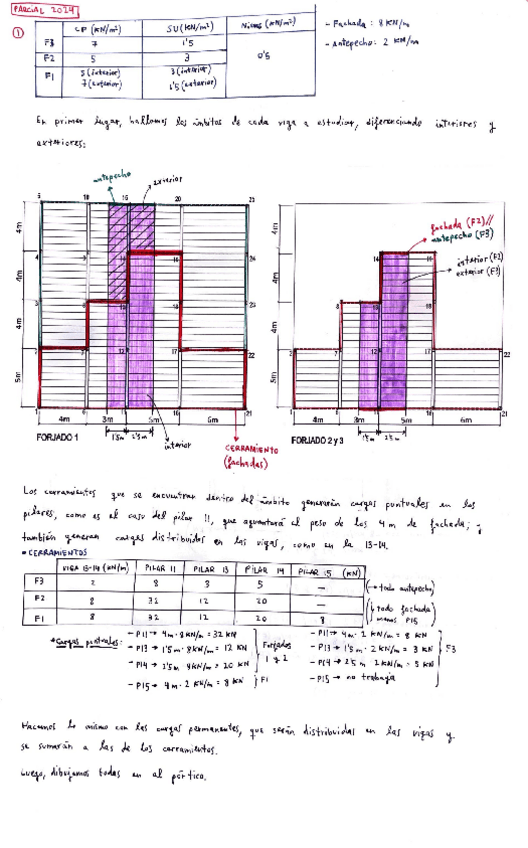 PARCIAL 2024
①
CP (KN/m²) SU (KN/m²) Nieve (KN/m²)
F3 7 1'5
F2 5 3 0'5
F1 5 (interior) 3 (interior)
7 (exterior) 1'5 (exterior)
- Fachada : 8 KN/m
- Antepecho : 2 KN/m
En primer lugar, hallamos los ámbitos de cada viga a estudiar, diferenciando interiores y
exteriores:
antepecho
exterior
5 10 15 20 23
4m
4m
4m
5m
1 6 11 16 21
4m 3m 5m 6m
1'5m 2'5m
FORJADO 1
interior
CERRAMIENTO
(fachadas)
fachada (F2)//
antepecho (F3)
interior (F2)
exterior (F3)
4m
4m
4m
5m
1 6 11 16 21
4m 3m 5m 6m
1'5m 2'5m
FORJADO 2 y 3
Los cerramientos que se encuentran dentro del ámbito generarán cargas puntuales en los
pilares, como es el caso del pilar 11, que aguantará el peso de los 4 m de fachada; y
también generan cargas distribuidas en las vigas, como en la 13-14.
• CERRAMIENTOS
VIGA 13-14 (KN/m) PILAR 11 PILAR 13 PILAR 14 PILAR 15 (KN)
F3 2 8 3 5 — (→ todo antepecho)
F2 8 32 12 20 —
F1 8 32 12 20 8
(→ todo fachada
menos P15)
* Cargas puntuales:
- P11 → 4m · 8 KN/m = 32 KN
- P13 → 1'5m · 8 KN/m = 12 KN
- P14 → 2'5m · 8 KN/m = 20 KN
Forjados
1 y 2
- P15 → 4m · 2 KN/m = 8 KN } F1
- P11 → 4m · 2 KN/m = 8 KN
- P13 → 1'5m · 2 KN/m = 3 KN
- P14 → 2'5m · 2 KN/m = 5 KN
- P15 → no trabaja
F3
Hacemos lo mismo con las cargas permanentes, que serán distribuidas en las vigas y
se sumarán a las de los cerramientos.
Luego, dibujamos todas en el pórtico.